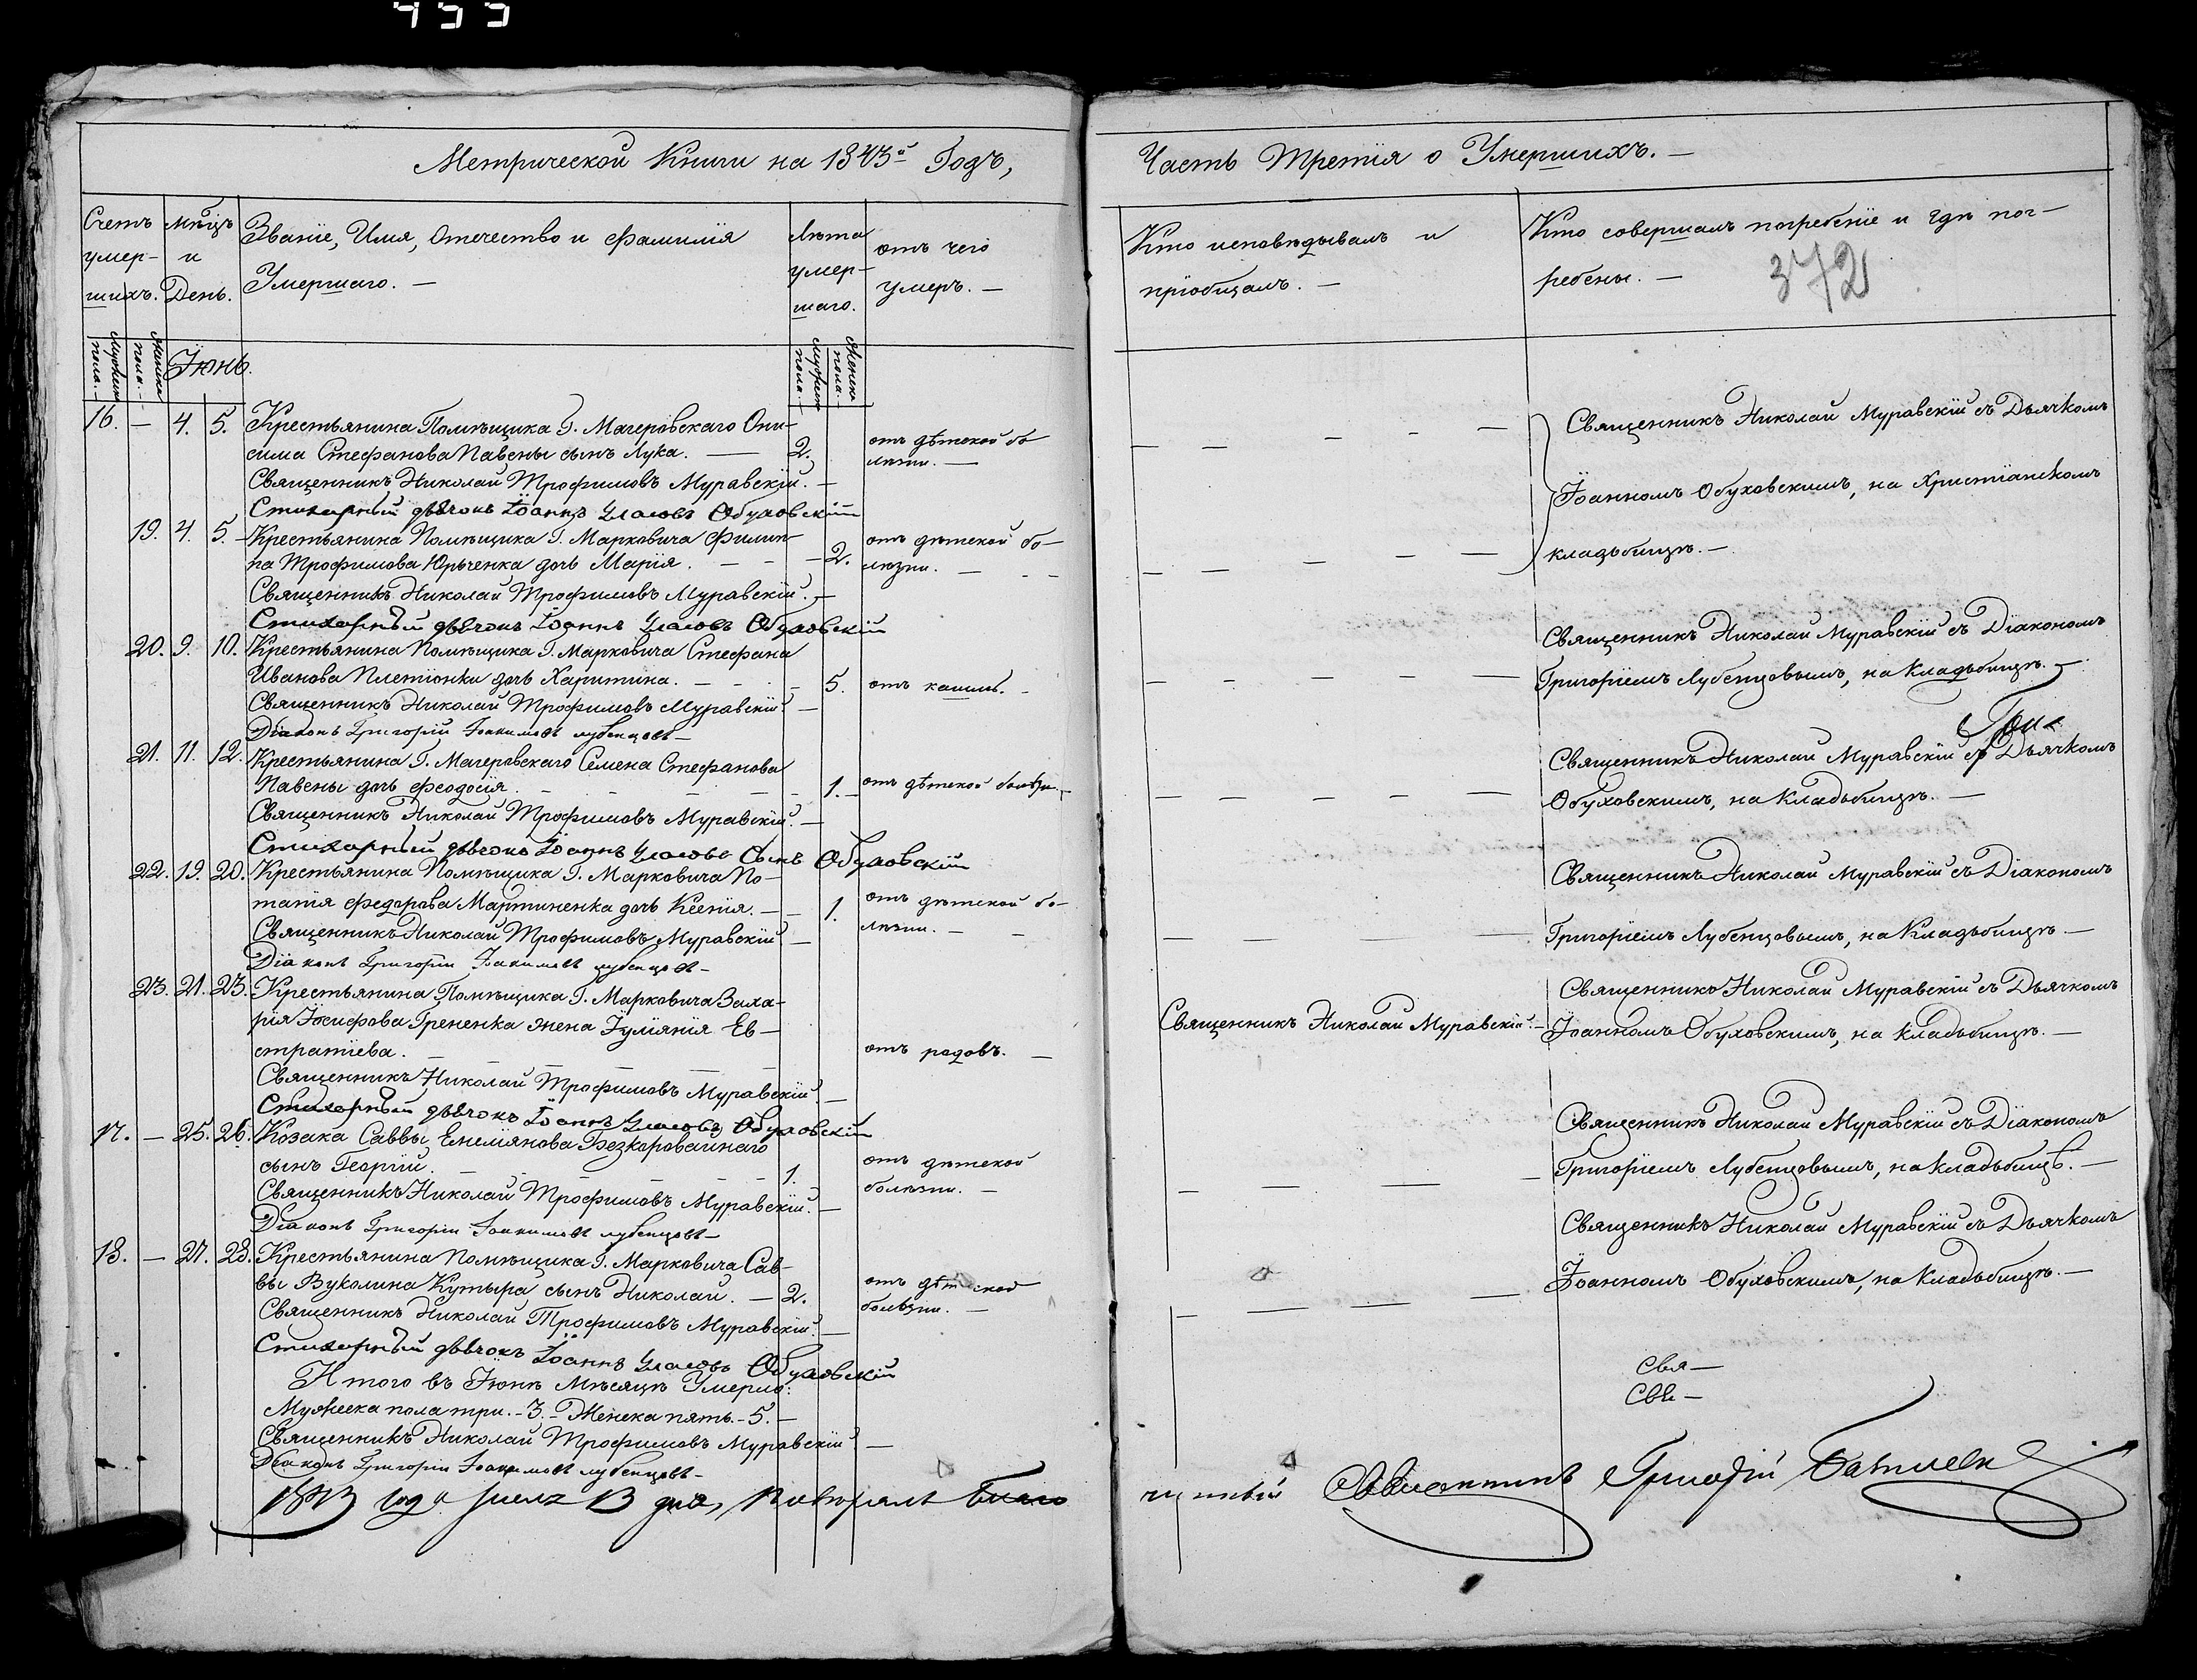 Метрической Книги на 1843й Годъ,
Счетъ умер-шихъ.
Мужеска пола.
Женска пола.
Мѣцъ и День.
Званіе, Имя, Отечество и Фамилія
Умершаго. —
Лѣта умер-шаго.
Мужеска пола.
Женска пола.
отъ чего
умеръ. —
Іюнь.
16. — 4. 5. Крестьянина Помѣщика Г. Магеровскаго Они-
сима Стефанова Павены сынъ Лука. — 2. отъ дѣтской бо-
лѣзни. —
Священникъ Николай Трофимовъ Муравскій. —
Стихарный дьячокъ Іоаннъ Обуховскій
19. 4. 5. Крестьянина Помѣщика Г. Марковича Филип-
па Трофимова Юрченка дочь Марія. — 2. отъ дѣтской бо-
лѣзни. —
Священникъ Николай Трофимовъ Муравскій. —
Стихарный дьячокъ Іоаннъ Обуховскій
20. 9. 10. Крестьянина Помѣщика Г. Марковича Стефана
Иванова Плетіонки дочь Харитина. — 5. отъ кашля. —
Священникъ Николай Трофимовъ Муравскій. —
Діаконъ Григорій Іоакимовъ Лубенцовъ —
21. 11. 12. Крестьянина Г. Магеровскаго Семена Стефанова
Павены дочь Феодосія. — 1. — отъ дѣтской болѣзни. —
Священникъ Николай Трофимовъ Муравскій. —
Стихарный дьячокъ Іоаннъ Сынъ Обуховскій
22. 19. 20. Крестьянина Помѣщика Г. Марковича По-
тапія Федорова Мартиненка дочь Ксенія. — 1. отъ дѣтской бо-
лѣзни. —
Священникъ Николай Трофимовъ Муравскій —
Діаконъ Григорій Іоакимовъ Лубенцовъ —
23. 21. 23. Крестьянина Помѣщика Г. Марковича Заха-
рія Іосифова Грененка жена Іуліянія Ев-
стратіева. — отъ родовъ. —
Священникъ Николай Трофимовъ Муравскій. —
Стихарный дьячокъ Іоаннъ Обуховскій
17. — 25. 26. Козака Саввы Емелянова Безкоровайнаго
сынъ Георгій. — 1. отъ дѣтской
болѣзни. —
Священникъ Николай Трофимовъ Муравскій. —
Діаконъ Григорій Іоакимовъ Лубенцовъ —
18. — 27. 28. Крестьянина Помѣщика Г. Марковича Сав-
вы Вуколина Кутыра сынъ Николай. — 2. отъ дѣтской
болѣзни. —
Священникъ Николай Трофимовъ Муравскій. —
Стихарный дьячокъ Іоаннъ Обуховскій
Итого въ Іюнѣ Мѣсяцѣ Умерло:
Мужеска пола три. — 3. — Женска пять. — 5. —
Священникъ Николай Трофимовъ Муравскій —
Діаконъ Григорій Іоакимовъ Лубенцовъ —
1843 года 13 дня, Благо
Часть Третія о Умершихъ. —
Кто исповѣдывалъ и
пріобщалъ. —
Кто совершалъ погребеніе и гдѣ пог-
ребены. —
372
Священникъ Николай Муравскій съ Дьячкомъ
Іоанномъ Обуховскимъ, на Христіанскомъ
кладьбищѣ. —
Священникъ Николай Муравскій съ Діакономъ
Григоріемъ Лубенцовымъ, на Кладьбищѣ. —
Священникъ Николай Муравскій съ Дьячкомъ
Обуховскимъ, на Кладьбищѣ. —
Священникъ Николай Муравскій съ Діакономъ
Григоріемъ Лубенцовымъ, на Кладьбищѣ —
Священникъ Николай Муравскій. — Священникъ Николай Муравскій съ Дьячкомъ
Іоанномъ Обуховскимъ, на Кладьбищѣ. —
Священникъ Николай Муравскій съ Діакономъ
Григоріемъ Лубенцовымъ, на Кладьбищѣ. —
Священникъ Николай Муравскій съ Дьячкомъ
Іоанномъ Обуховскимъ, на Кладьбищѣ. —
Свя —
Свя —
чинный Священникъ Григорій